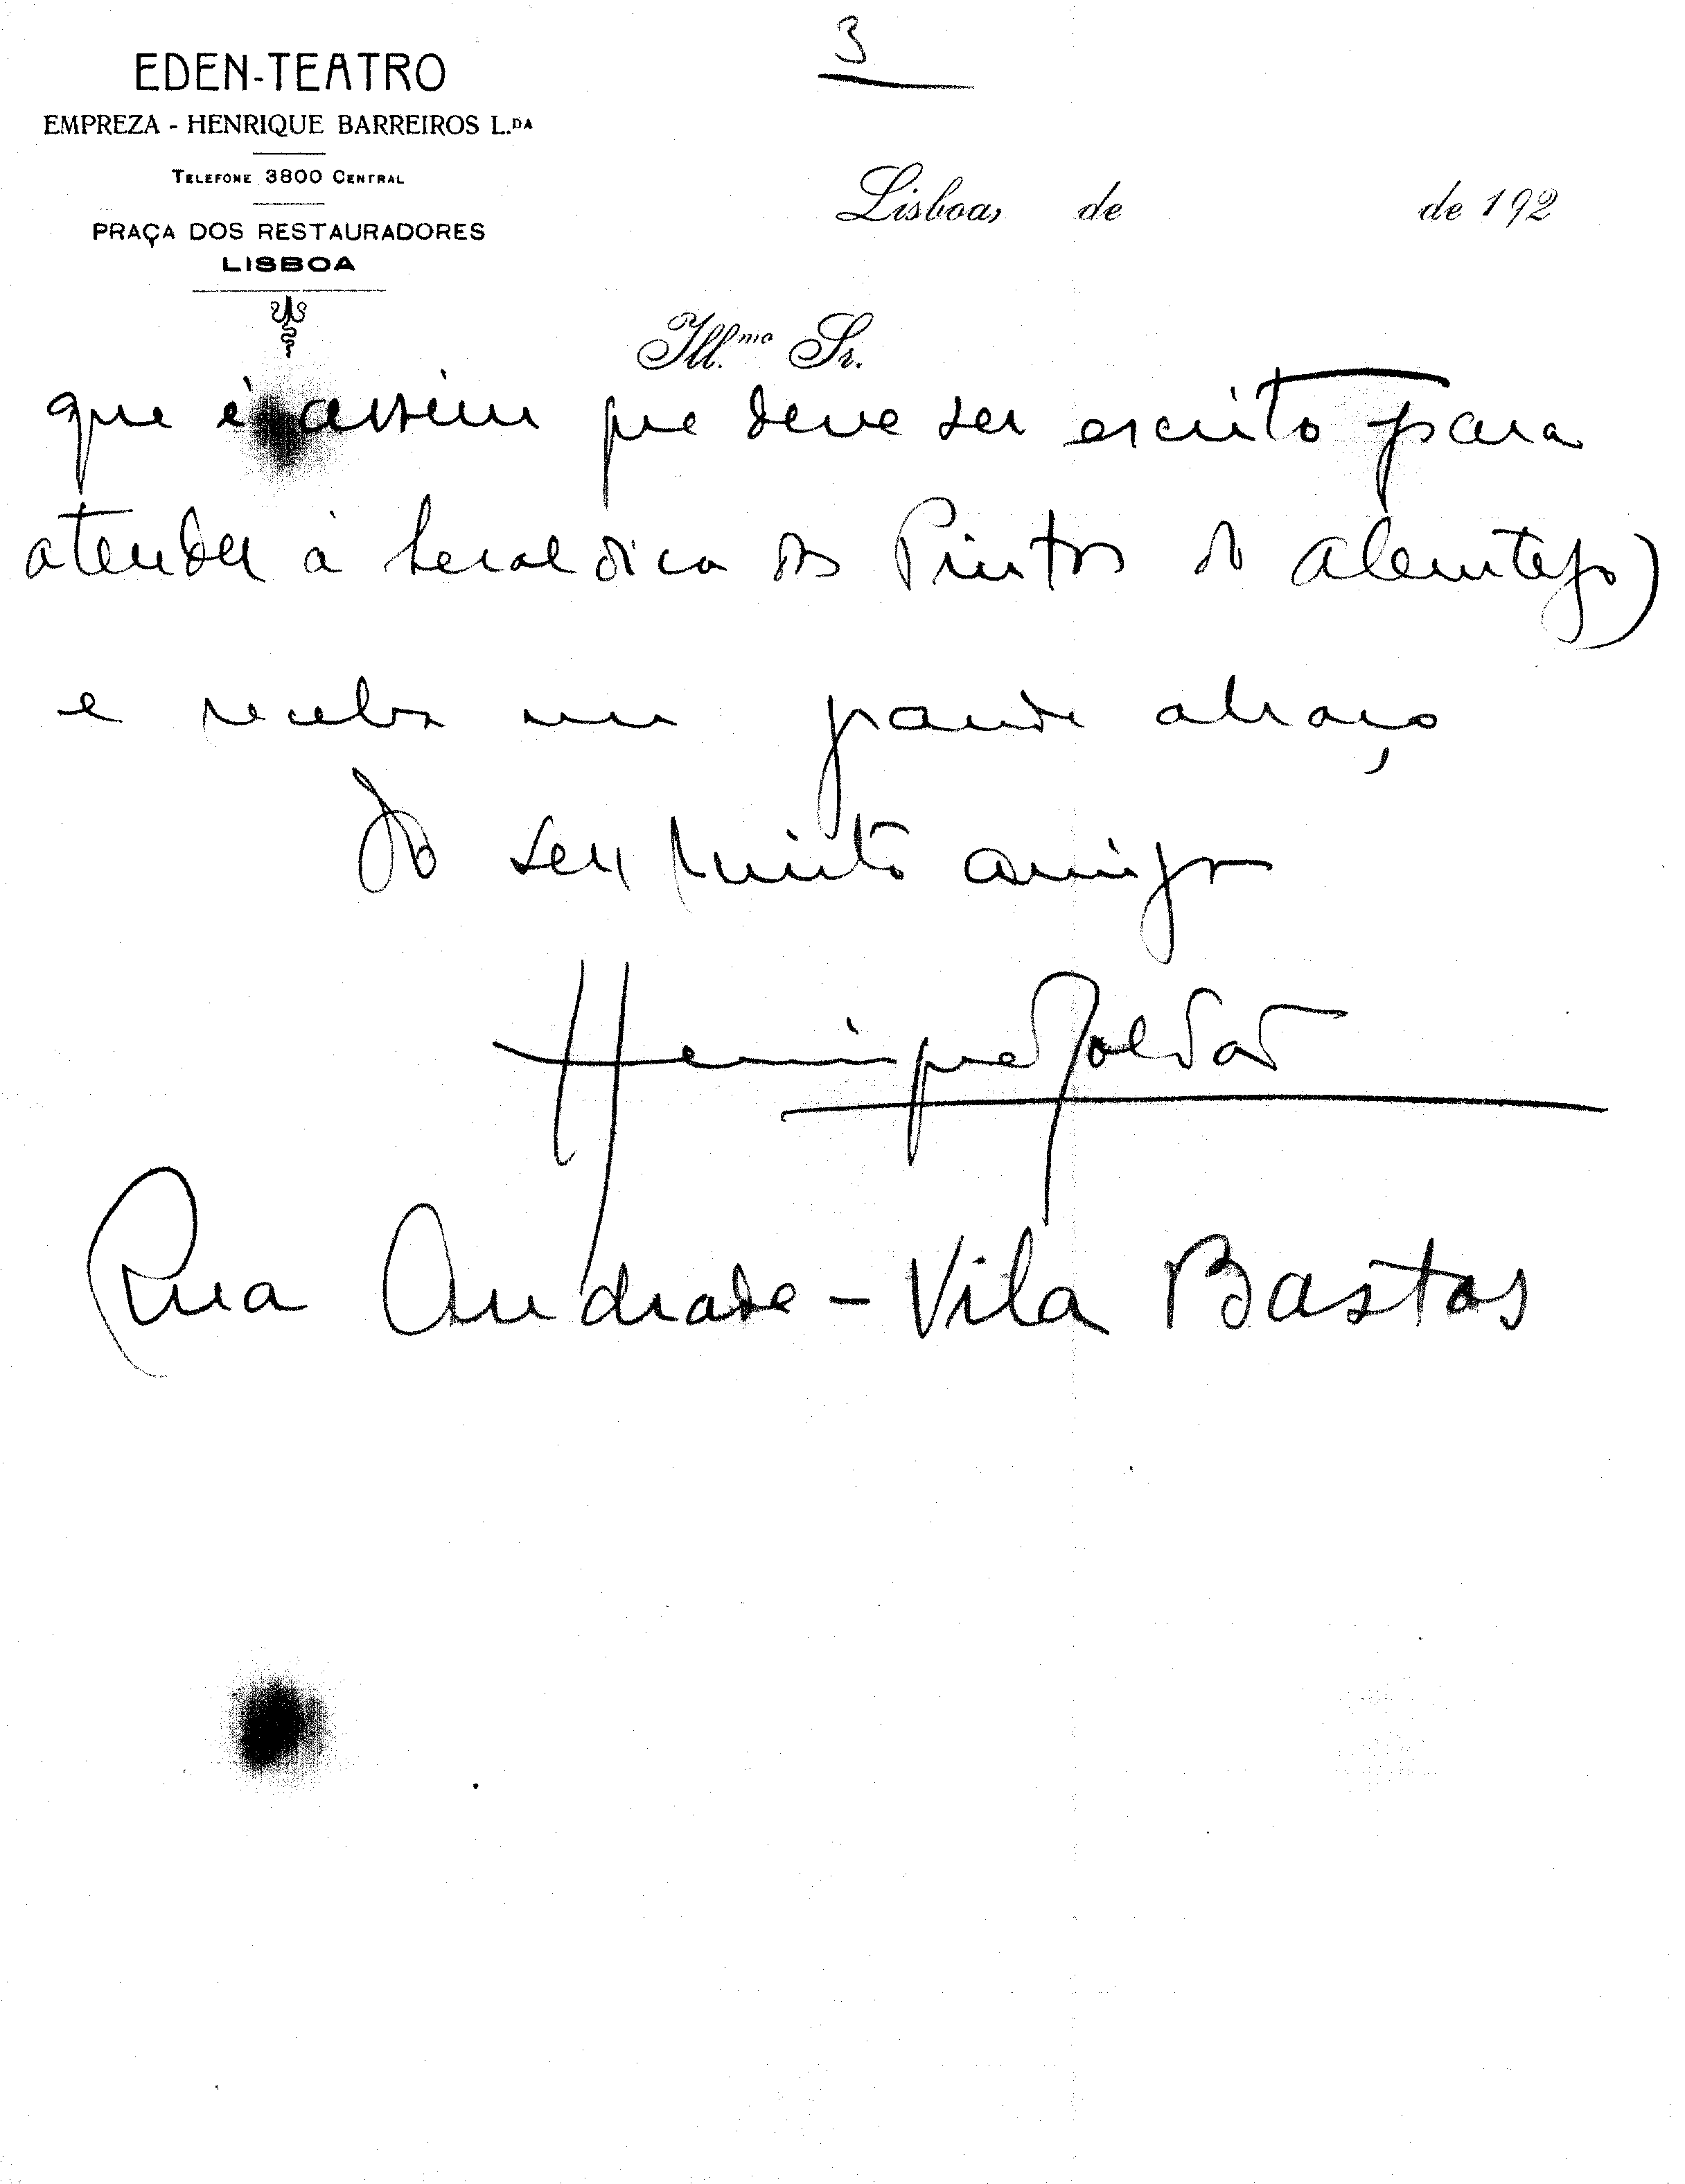 3
EDEN-TEATRO
EMPREZA - HENRIQUE BARREIROS L.DA
TELEFONE 3800 CENTRAL
PRAÇA DOS RESTAURADORES
LISBOA
Lisboa, de de 192
Ill.mo Sr.
que é assim que deve ser escrito para
atender à heraldica dos Pintos do Alemtejo)
e receba um grande abraço
Do seu muito amigo
Henrique Roldão
Rua Andrade - Vila Bastos